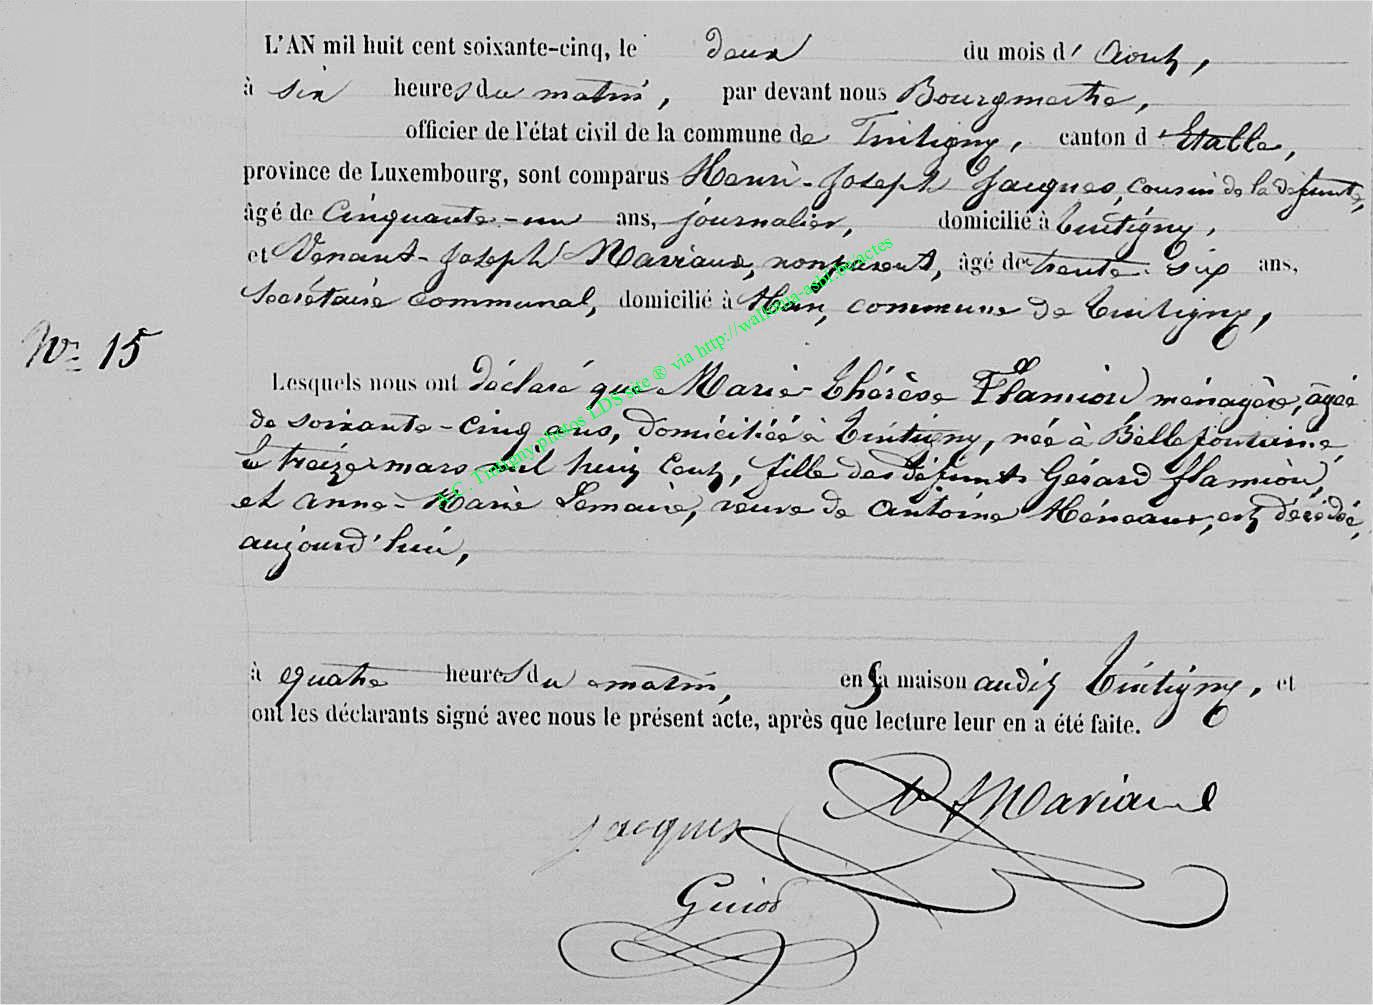 L'AN mil huit cent soixante-cinq, le deux du mois d'Aout,
à six heures du matin, par devant nous Bourgmestre,
officier de l'état civil de la commune de Tintigny, canton d'Etalle,
province de Luxembourg, sont comparus Henri-Joseph Jacques, cousin de la défunte,
âgé de Cinquante-un ans, journalier, domicilié à Tintigny,
et Venant-Joseph Mariaux, non parent, âgé de trente-six ans,
Secrétaire communal, domicilié à Han, commune de Tintigny,
N° 15
Lesquels nous ont déclaré que Marie-Thérèse Flamion, ménagère, âgée
de soixante-cinq ans, domiciliée à Tintigny, née à Bellefontaine,
le treize mars mil huit Cent, fille des défunts Gérard flamion,
et anne-Marie Lemaire, veuve de antoine Héneaux, est décédée,
aujourd'hui,
à quatre heures du matin, en sa maison audit Tintigny, et
ont les déclarants signé avec nous le présent acte, après que lecture leur en a été faite.
Mariaux
Jacques
Guiot
A.C. Tintigny photos LDS site ® via http://wallonia-asbl.be/actes